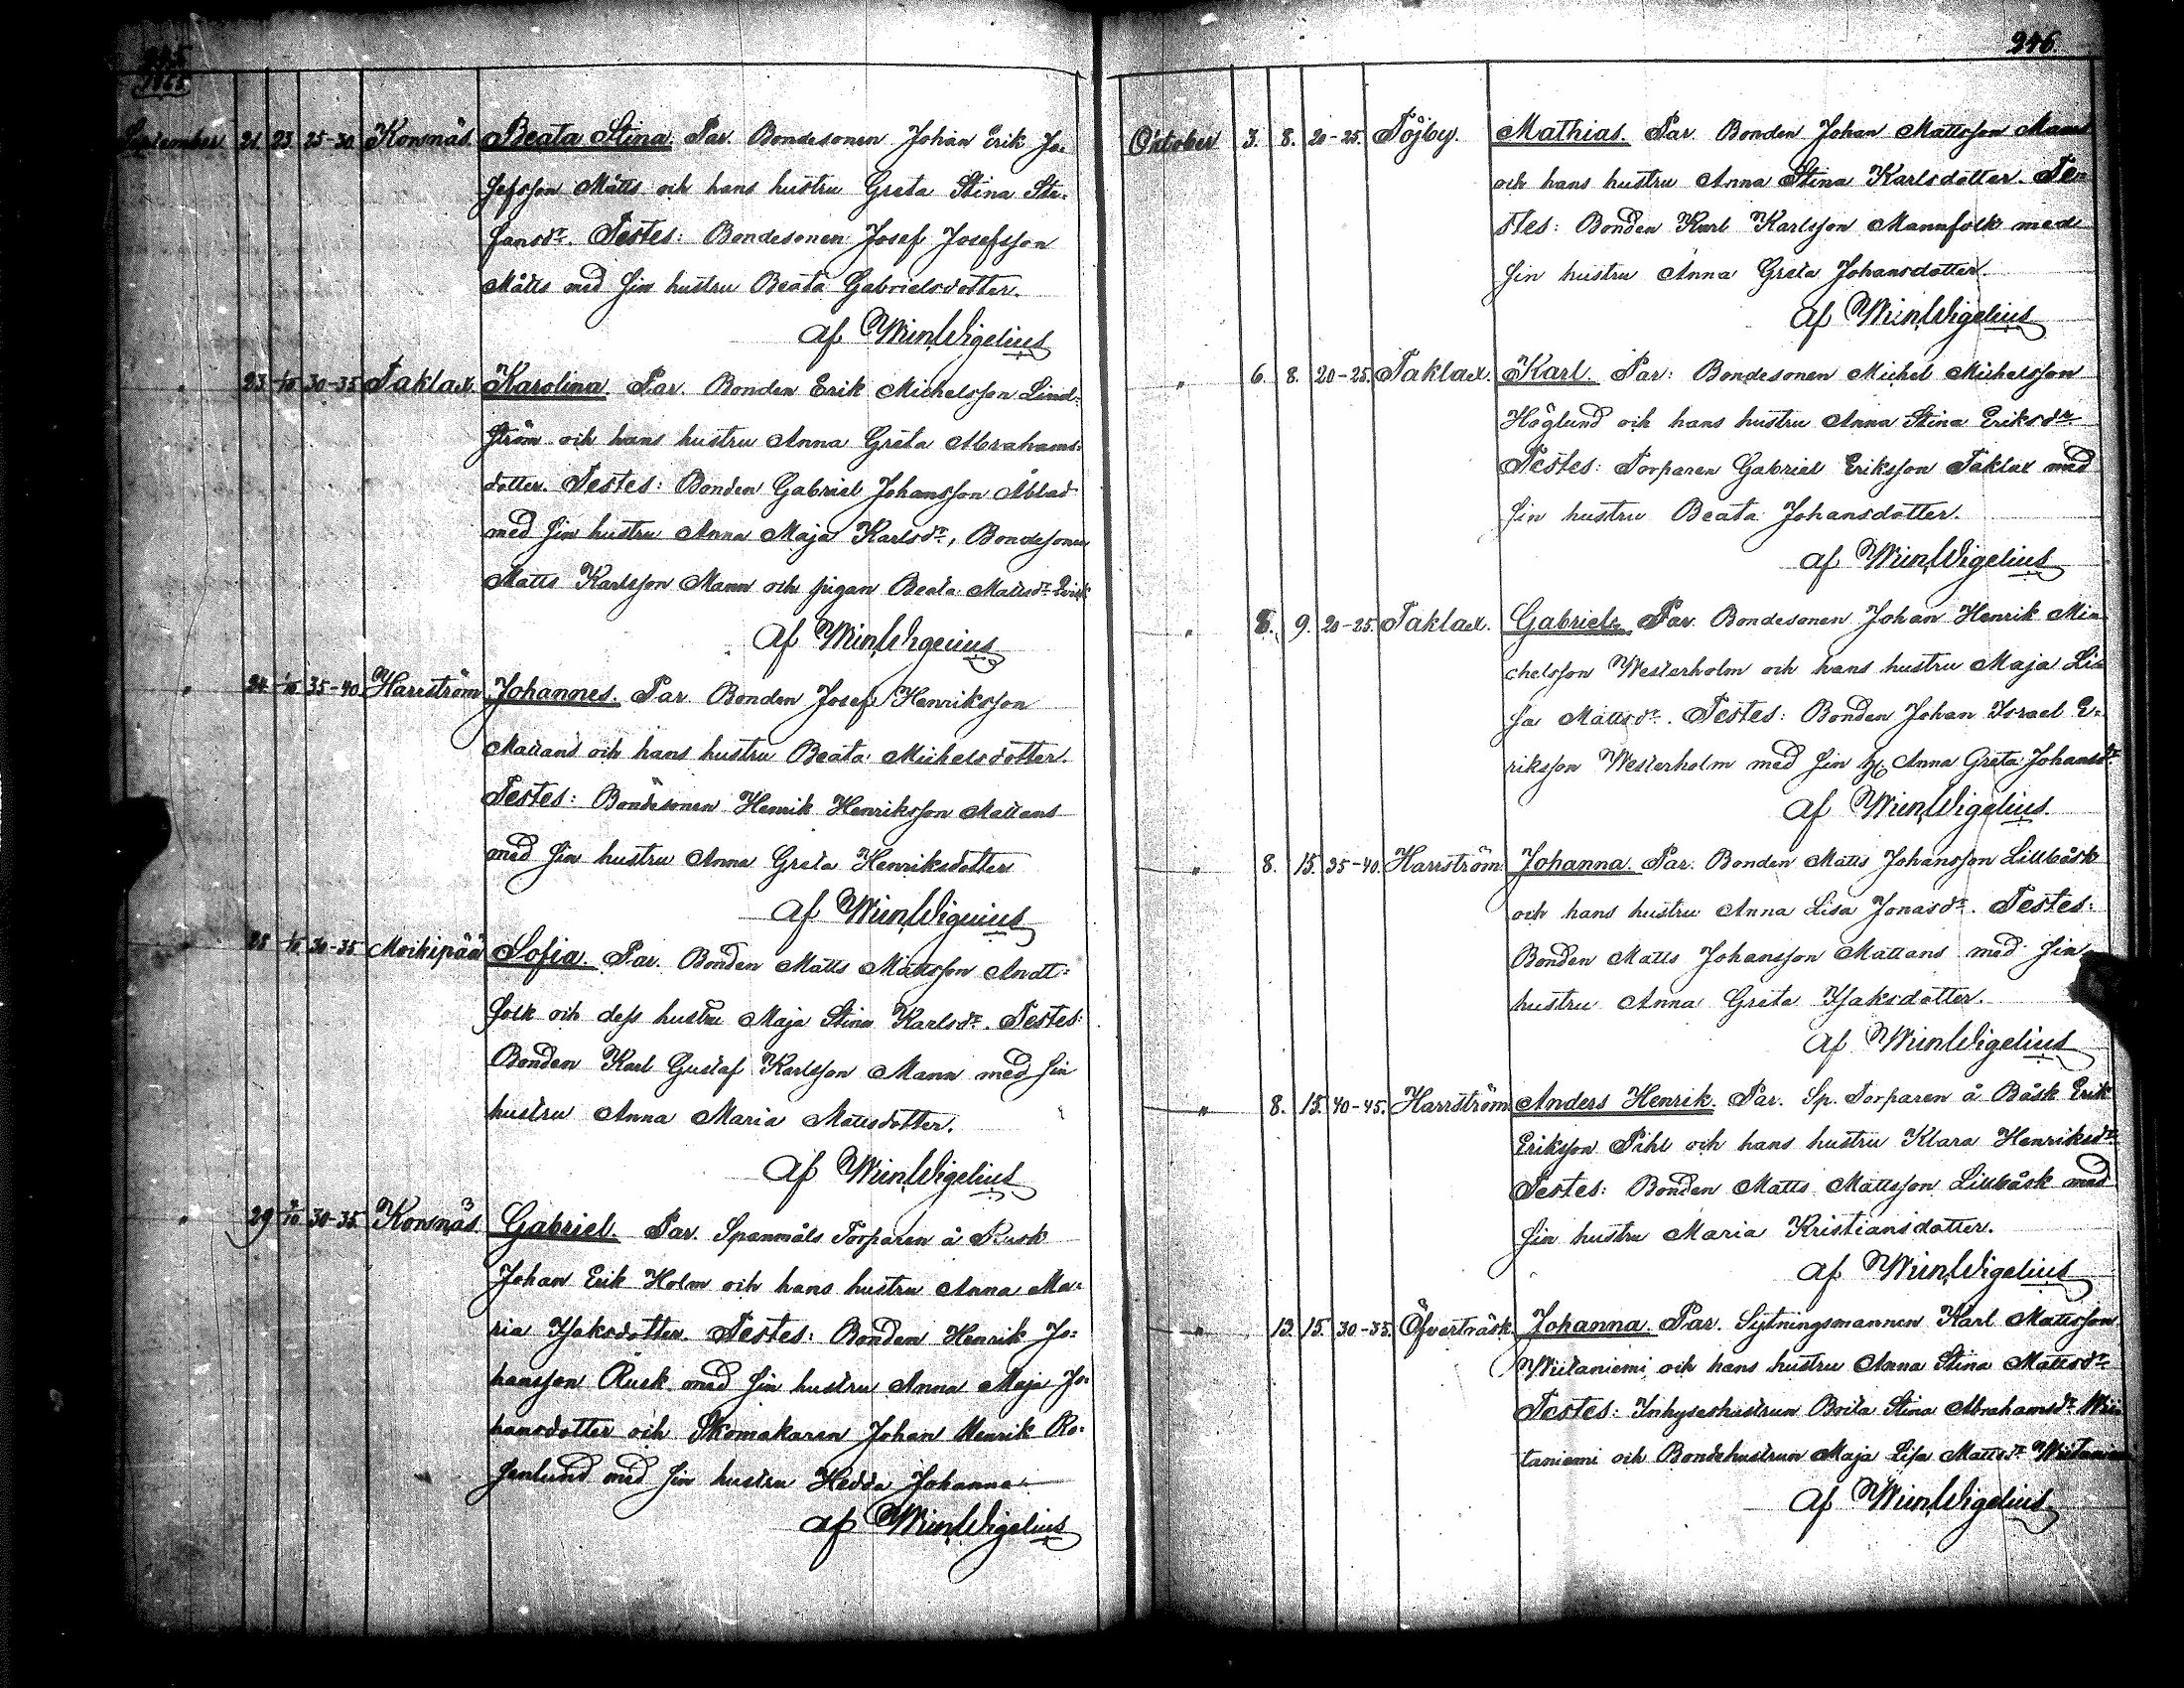 September 21. 23. 25-30. Korsnäs. Beata Stina. Par. Bondesonen Johan Erik Jo-
sefsson Mätts och hans hustru Greta Stina Ste-
fansdr. Testes: Bondesonen Josef Josefsson
Mätts med sin hustru Beata Gabrielsdotter.
af Wigelius
" 23. 1/10 30-35 Taklax. Karolina. Par. Bonden Erik Michelsson Lind-
ström och hans hustru Anna Greta Abrahams-
dotter. Testes: Bonden Gabriel Johansson Åblad
med sin hustru Anna Maja Karlsdr., Bondesonen
Matts Karlsson Mann och pigan Beata Mattsdr
af Wigelius
" 24. 1/10 35-40. Harrström Johannes. Par. Bonden Josef Henriksson
Mattans och hans hustru Beata Michelsdotter.
Testes: Bondesonen Henrik Henriksson Mattans
med sin hustru Anna Greta Henriksdotter
af Wigelius
" 1/10 30-35 Moikipää Sofia. Par. Bonden Matts Mattsson Andt-
folk och dess hustru Maja Stina Karlsdr. Testes:
Bonden Karl Gustaf Karlsson Mann med sin
hustru Anna Maria Mattsdotter.
af Wigelius
" 29 30-35. Korsnäs. Gabriel. Par. Spanmåls Torparen å Rusk
Johan Erik Holm och hans hustru Anna Ma-
ria Isaksdotter. Testes: Bonden Henrik Jo-
hansson Rusk med sin hustru Anna Maja Jo-
hansdotter och Skomakaren Johan Henrik Ro-
senlund med sin hustru Hedda Johanna
af Wigelius
246.
Oktober 3. 8. 20-25. Töjby. Mathias. Par. Bonden Johan Mattsson Mann
och hans hustru Anna Stina Karlsdotter. Te-
stes: Bonden Karl Karlsson Mannfolk med
sin hustru Anna Greta Johansdotter.
af Wigelius
" 6. 8. 20-25. Taklax. Karl. Par: Bondesonen Michel Michelsson
Höglund och hans hustru Anna Stina Eriksdr
Testes: Torparen Gabriel Eriksson Taklax med
sin hustru Beata Johansdotter.
af Wigelius
" 9. 20-25. Taklax. Gabriel. Par. Bondesonen Johan Henrik Mi-
chelsson Westerholm och hans hustru Maja Li-
sa Mattsdr. Testes: Bonden Johan Israel E-
riksson Westerholm med sin h. Anna Greta Johansdr.
af Wigelius.
" 8. 15. 35-40. Harrström. Johanna. Par. Bonden Matts Johansson Lillbåsk
och hans hustru Anna Lisa Jonasdr. Testes:
Bonden Matts Johansson Mattans med sin
hustru Anna Greta Isaksdotter.
af Wigelius
" 8. 15. 40-45. Harrström Anders Henrik. Par. Sp. Torparen å Båsk Erik
Eriksson Pihl och hans hustru Klara Henriksdr
Testes: Bonden Matts Mattsson Lillbåsk med
sin hustru Maria Kristiansdotter.
af Wigelius
" 13. 15. 30-35. Öfverträsk. Johanna. Par. Sytningsmannen Karl Mattsson
Wiitaniemi och hans hustru Anna Stina Mattsdr
Testes: Inhyseshustrun Brita Stina Abrahamsdr. Wii-
taniemi och Bondehustrun Maja Lisa Mattsdr Wiitaniemi
af Wigelius